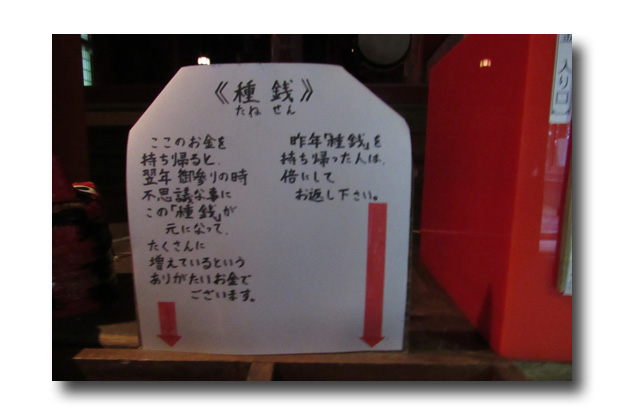 《種銭》
たねせん
ここのお金を
持ち帰ると、
翌年 御参りの時
不思議な事に
この「種銭」が
元になって、
たくさんに
増えているという
ありがたいお金で
ございます。
昨年「種銭」を
持ち帰った人は、
倍にして
お返し下さい。
入り口